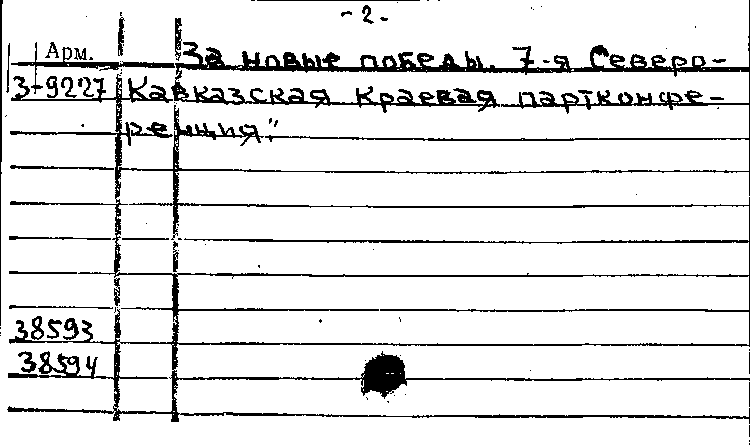 - 2 -
Арм.
За новые победы. 7-я Северо-
3-9227 Кавказская Краевая партконфе-
ренция."
38593
38594